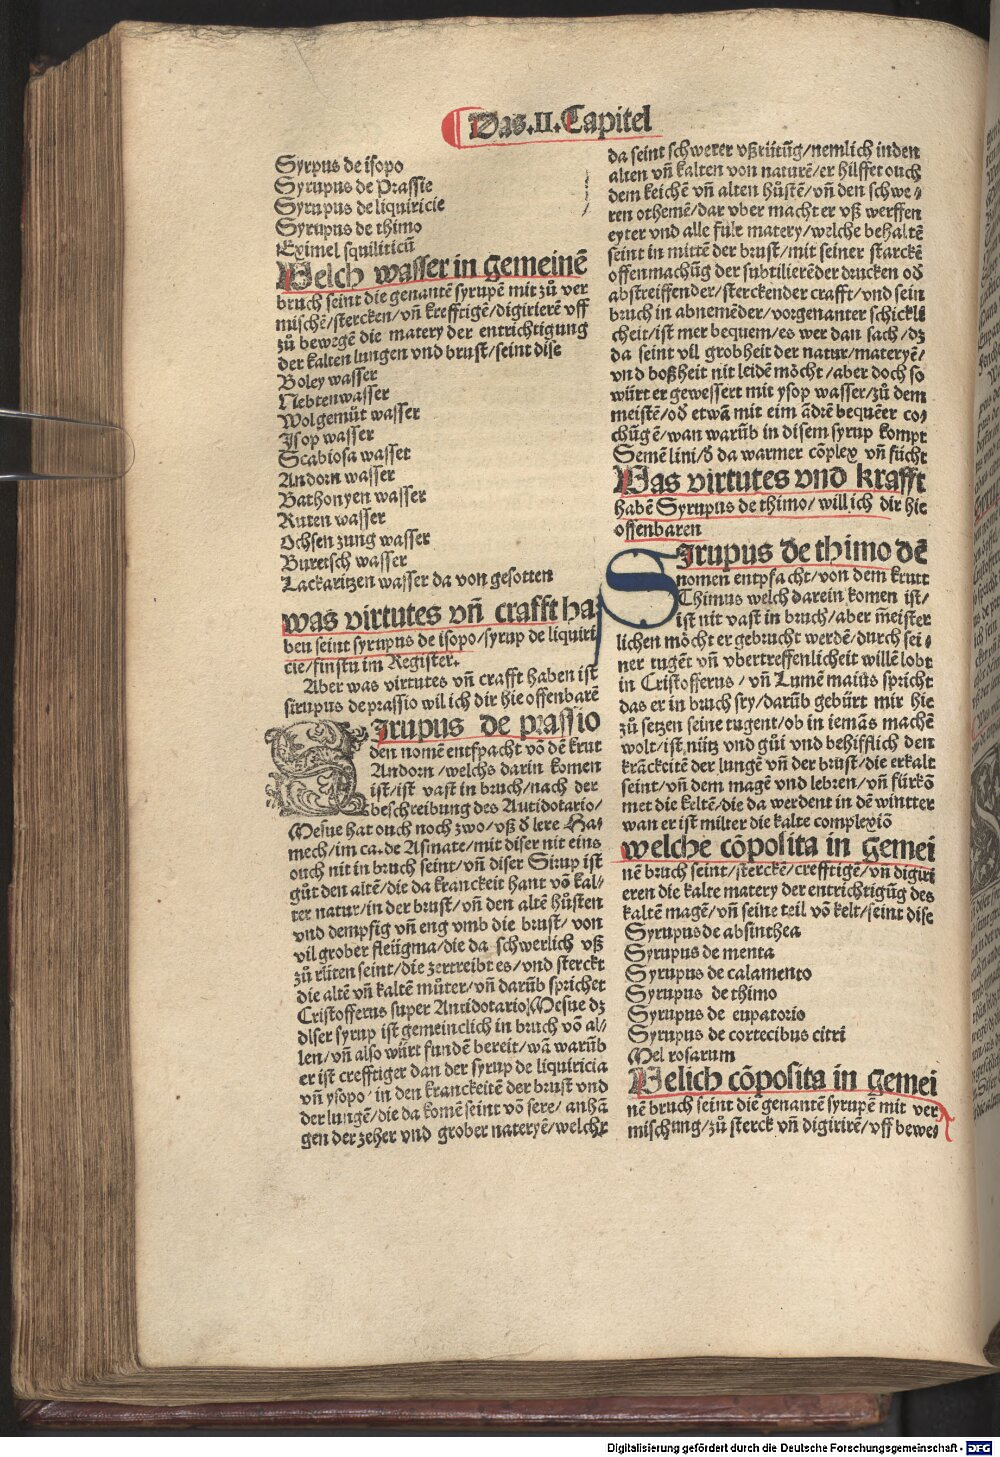 Das .II. Capitel
Syrpus de isopo
Syrupus de Prassie
Syrupus de liquiricie
Syrupus de thimo
Eximel squiliticū
Welch wasser in gemeinē
bruch seint die genantē syrupē mit zů ver
mischē/stercken/vñ krefftigē/digirierē vff
zů bewegē die matery der entrichtigung
der kalten lungen vnd brust/seint dise
Boley wasser
Nebtenwasser
Wolgemůt wasser
Isop wasser
Scabiosa wasset
Andorn wasser
Bathonyen wasser
Ruten wasser
Ochsen zung wasser
Buretsch wasser
Lackaritzen wasser da von gesotten
was virtutes vñ crafft ha
ben seint syrupus de isopo/syrup de liquiri
cie/finstu im Register.
Aber was virtutes vñ crafft haben ist
sirupus de prassio wil ich dir hie offenbarē
SIrupus de prassio
den nomē entfpacht vō dē krut
Andorn/welchs darin komen
ist/ist vast in bruch/nach der
beschreibung des Autidotario/
Mesue hat ouch noch zwo/vß d̄ lere Ha⸗
mech/im ca.de Asmate/mit diser nit eins
ouch nit in bruch seint/vñ diser Sirup ist
gůt den altē/die da kranckeit hant vō kal⸗
ter natur/in der brust/vñ den altē hůsten
vnd dempfig vñ eng vmb die brust/von
vil grober fleügma/die da schwerlich vß
zů rüten seint/die zertreibt es/vnd sterckt
die altē vñ kaltē můter/vñ darūb sprichet
Cristofferus super Antidotario Mesue dz
diser syrup ist gemeinclich in bruch vō al⸗
len/vñ also würt fundē bereit/wā warūb
er ist crefftiger dan der syrup de liquiricia
vñ ysopo/in den kranckeitē der brust vnd
der lungē/die da komē seint vō sere/anhā
gen der zeher vnd grober nateryē/welchr
da seint schwerer vßrütūg/nemlich in den
alten vñ kalten von naturē/er hilffet ouch
dem keichē vñ alten hůstē/vñ den schwe⸗
ren othemē/dar vber macht er vß werffen
eyter vnd alle fule matery/welche behaltē
seint in mittē der brust/mit seiner starckē
offenmachūg der subtilierēder drucken od̄
abstreiffender/sterckender crafft/vnd sein
bruch in abnemēder/vorgenanter schickli
cheit/ist mer bequem/es wer dan sach/dz
da seint vil grobheit der natur/materyē/
vnd boßheit nit leidē mōcht/aber doch so
würt er gewessert mit ysop wasser/zů dem
meistē/od̄ etwā mit eim ādrē bequēer co⸗
chūgē/wan warūb in disem syrup kompt
Semē lini/d̄ da warmer cōplex vñ fücht
Was virtutes vnd krafft
habē Syrupus de thimo/will ich dir hie
offenbaren
SIrupus de thimo dē
nomen entpfacht/von dem krutt
Thimus welch darein komen ist/
ist nit vast in bruch/aber m̄eister
lichen mōcht er gebrucht werdē/durch sei⸗
ner tugēt vñ vbertreffenlicheit willē lobt
in Cristofferus/vñ Lumē maius spricht
das er in bruch sry/darūb gebürt mir hie
zů setzen seine tugent/ob in iemās machē
wolt/ist nütz vnd gůt vnd behifflich den
krāckeitē der lungē vñ der brust/die erkalt
seint/vñ dem magē vnd lebren/vñ fürkō
met die keltē/die da werdent in dē wintter
wan er ist milter die kalte complexiō
welche cōposita in gemei
nē bruch seint/sterckē/crefftigē/vñ digiri
eren die kalte matery der entrichtigūg des
kaltē magē/vñ seine teil vō kelt/seint dise
Syrupus de absinthea
Syrupus de menta
Syrupus de calamento
Syrupus de thimo
Syrupus de eupatorio
Syrupus de cortecibus citri
Mel rosarum
Welich cōposita in gemei
nē bruch seint die genantē syrupē mit ver
mischung/zů sterck vñ digirirē/vff bewe⸗
Digitalisierung gefördert durch die Deutsche Forschungsgemeinschaft - DFG